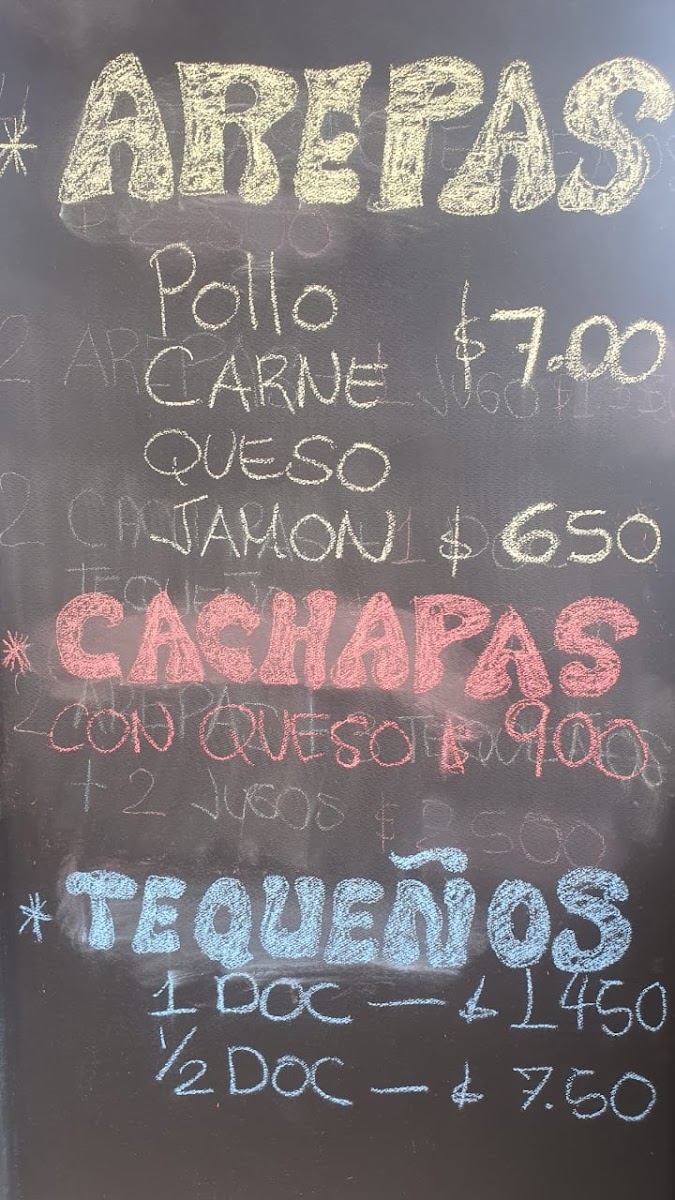 * AREPAS
Pollo
$7.00
CARNE
QUESO
JAMON $ 650
* CACHAPAS
CON QUESO $ 900
+ 2 JUGOS $ 2500
* TEQUEÑOS
1 DOC — $ 1450
1/2 DOC — $ 7.50